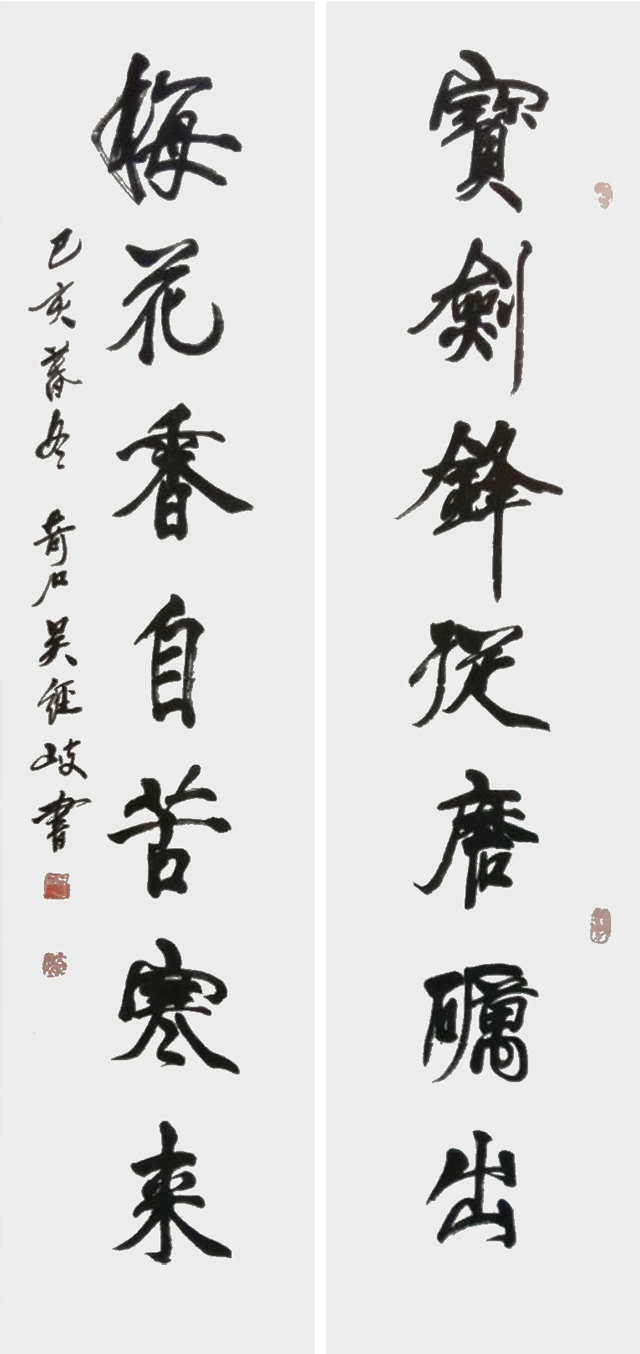 寶劍鋒從磨礪出
梅花香自苦寒来
己亥暮冬 奇石吴征岐書